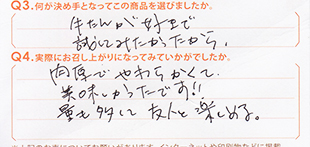 Q3.何が決め手となってこの商品を選びましたか。
牛たんが好きで
試してみたかったから。
Q4.実際にお召し上がりになってみていかがでしたか。
肉厚でやわらかくて
美味しかったです!!
量も多くて友人と楽しめる。